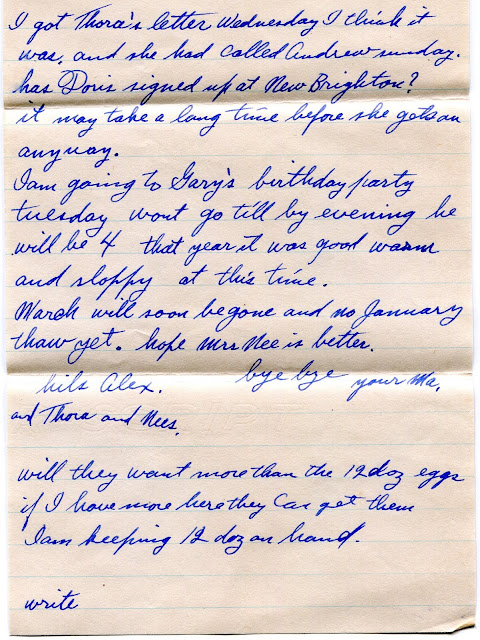 I got Thora's letter Wednesday I think it
was, and she had called Andrew sunday.
has Doris signed up at New Brighton?
it may take a long time before she gets on
anyway.
I am going to Gary's birthday party
tuesday wont go till by evening he
will be 4 that year it was good warm
and sloppy at this time.
March will soon be gone and no January
thaw yet. hope Mrs Nee is better.
bye bye your Ma.
hils Alex.
and Thora and Nees.
will they want more than the 12 doz eggs
if I have more here they can get them
I am keeping 12 doz on hand.
write